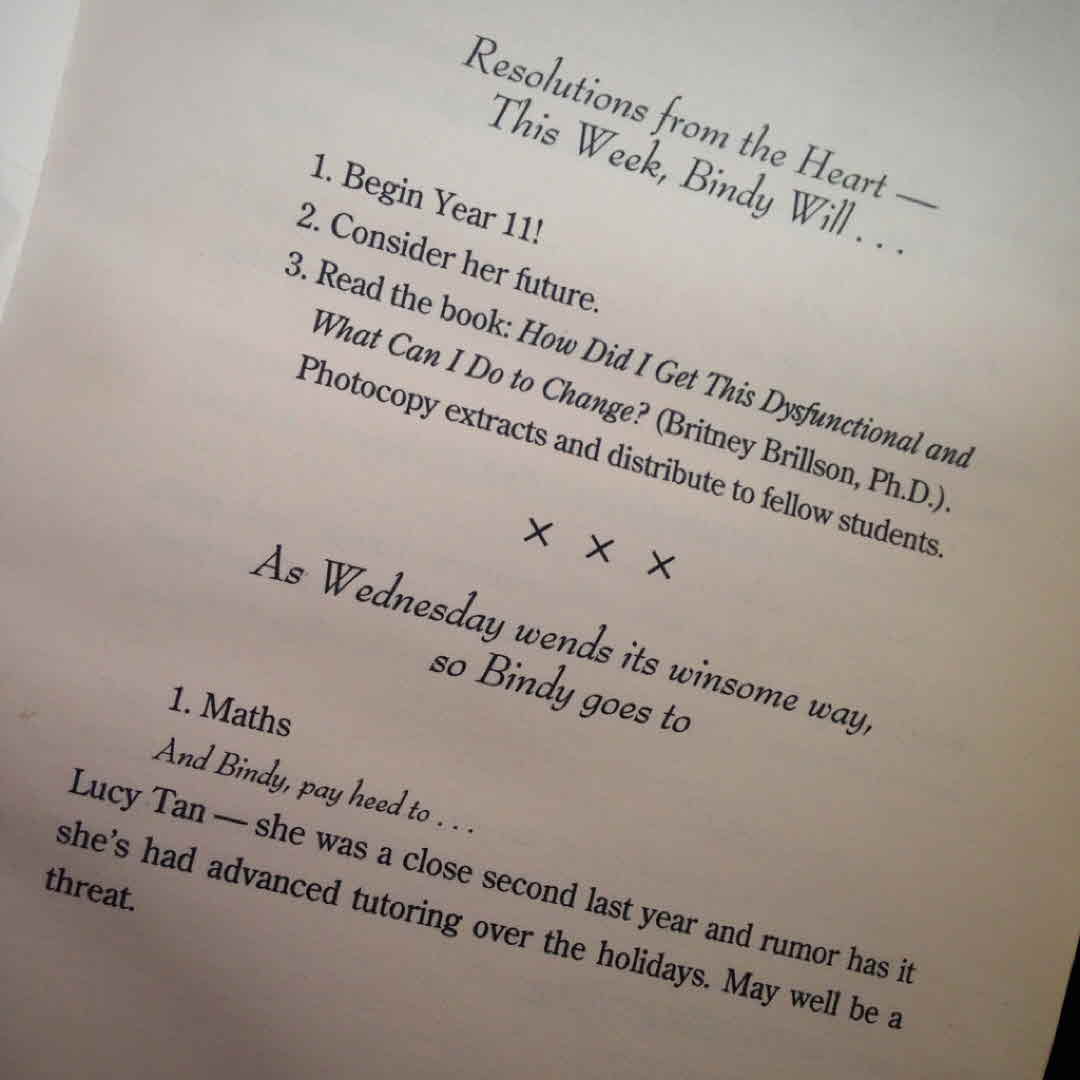 Resolutions from the Heart —
This Week, Bindy Will . . .
1. Begin Year 11!
2. Consider her future.
3. Read the book: How Did I Get This Dysfunctional and
What Can I Do to Change? (Britney Brillson, Ph.D.).
Photocopy extracts and distribute to fellow students.
× × ×
As Wednesday wends its winsome way,
so Bindy goes to
1. Maths
And Bindy, pay heed to . . .
Lucy Tan — she was a close second last year and rumor has it
she's had advanced tutoring over the holidays. May well be a
threat.